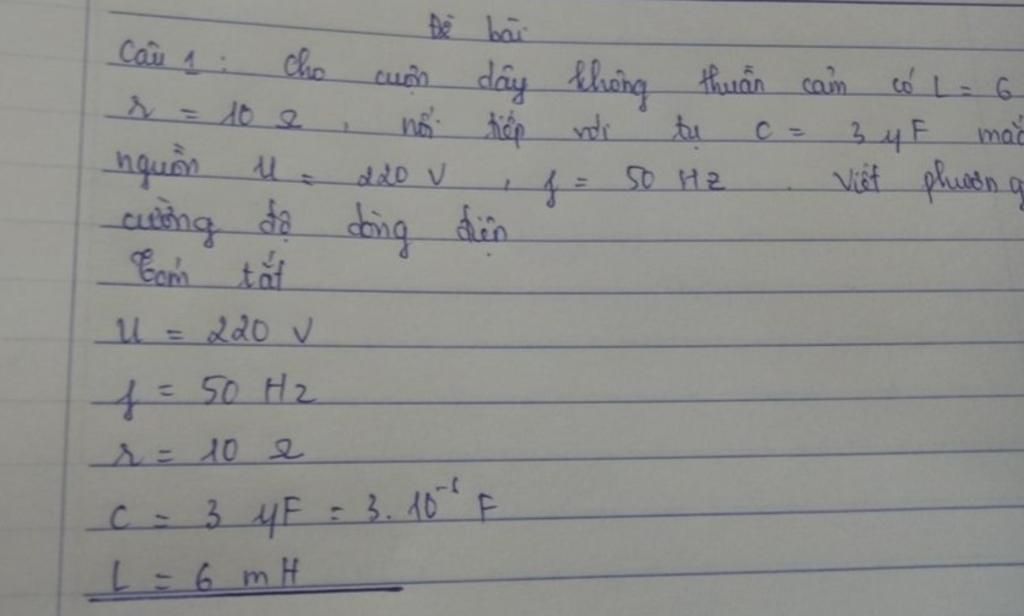 Đề bài
Câu 1 : Cho cuộn dây không thuần cảm có L = 6
r = 10 Ω , nối tiếp với tụ C = 3 μF mắc
nguồn U = 220 V , f = 50 Hz . Viết phương
cường độ dòng điện
Tóm tắt
U = 220 V
f = 50 Hz
r = 10 Ω
C = 3 μF = 3. 10⁻⁶ F
L = 6 mH